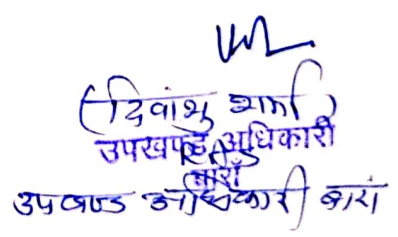 (दिवांशु शर्मा)
उपखण्ड अधिकारी
RAS
बाराँ
उपखण्ड अधिकारी बारां